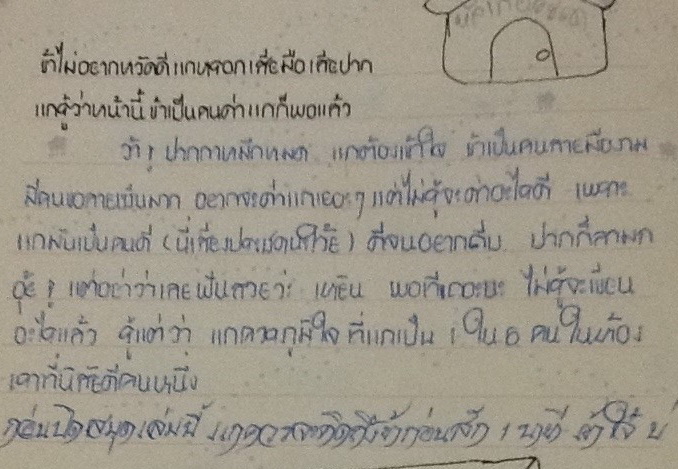 ข้าไม่อยากหวัดดีแกหรอกเสียมือเสียปาก
แกรู้ว่าหน้านี้ข้าเป็นคนด่าแกก็พอแล้ว
ว้า! ปากกาหมึกหมด แกต้องเข้าใจ ข้าเป็นคนลายมืองาม
มีคนขอลายเซ็นมาก อยากจะด่าแกเยอะๆ แต่ไม่รู้จะด่าอะไรดี เพราะ
แกมันเป็นคนดี (นี่เสียงประชดนะโว้ย) ดีจนอยากถีบ ปากก็ลามก
อุ้ย! แต่อย่าว่าเลยฟันสวยว่ะ เหยิน พอเถอะนะ ไม่รู้จะเขียน
อะไรแล้ว รู้แต่ว่า แกควรภูมิใจ ที่แกเป็น 1 ใน 6 คนในห้อง
เราที่นิสัยดีคนหนึ่ง
ก่อนปิดสมุดเล่มนี้ แกควรจะคิดถึงข้าก่อนสัก 1 นาที เข้าใจ๋